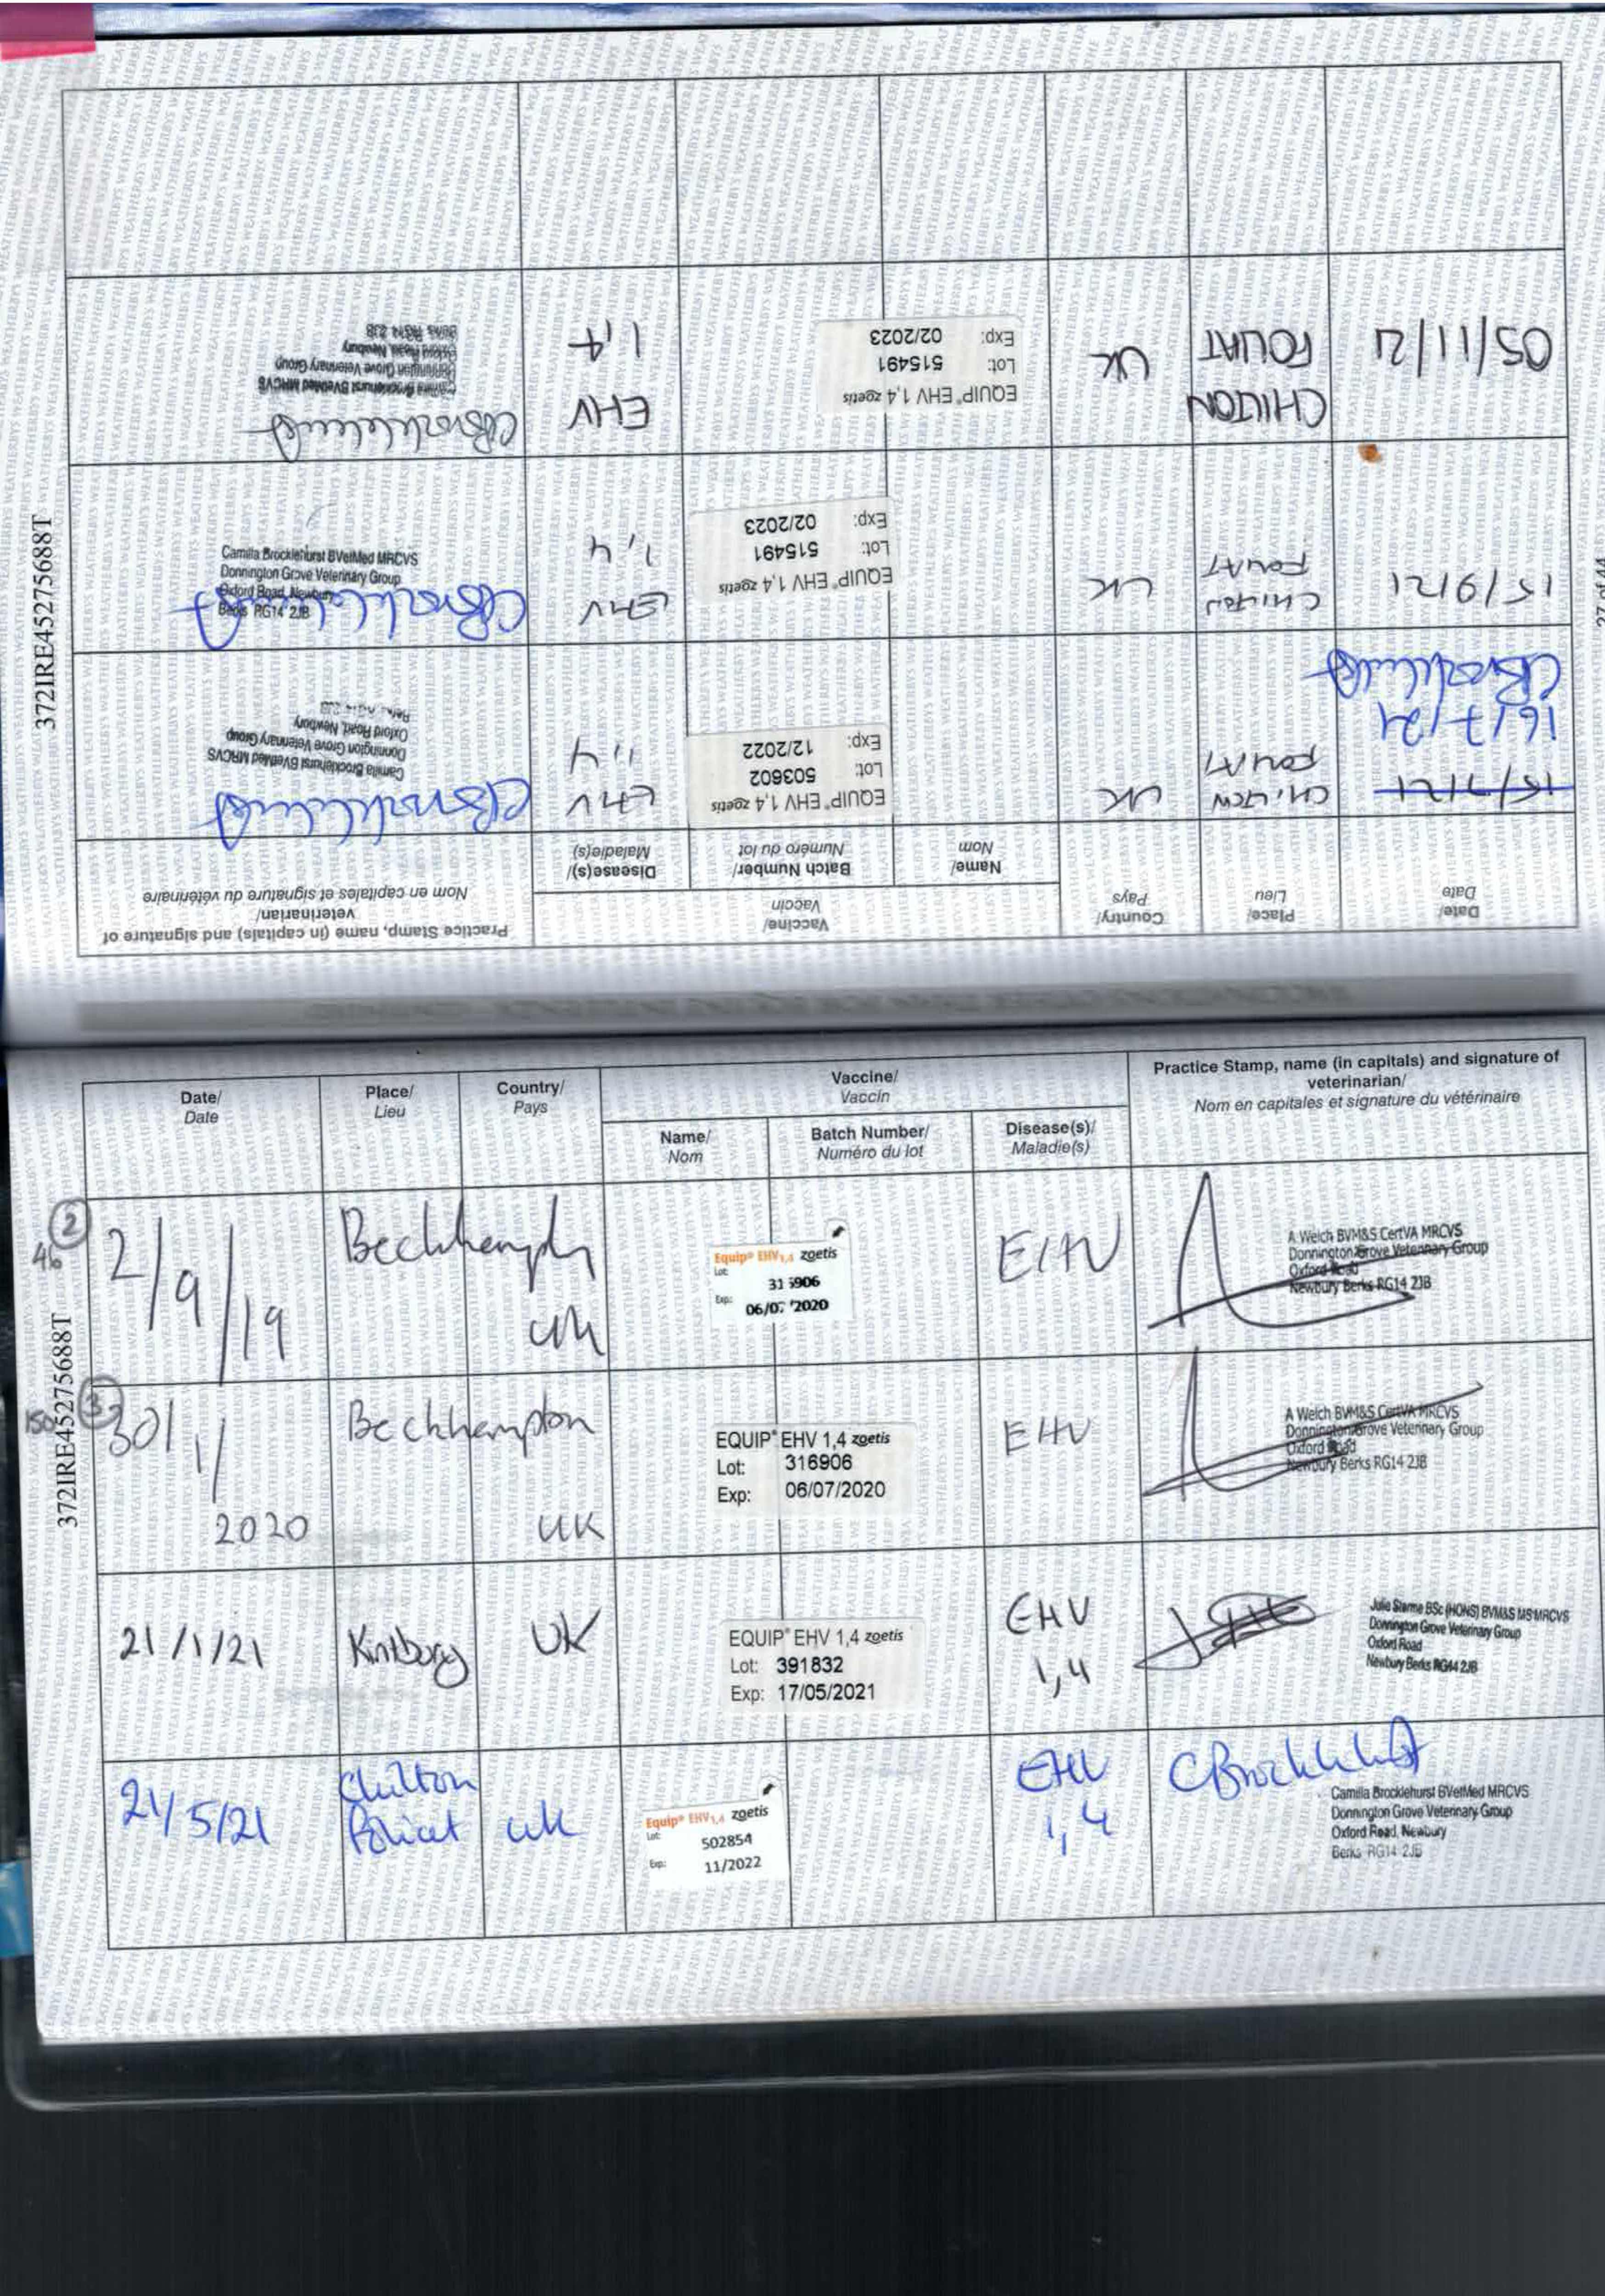 372IRE45275688T
Date/
Date
Place/
Lieu
Country/
Pays
Vaccine/
Vaccin
Name/
Nom
Batch Number/
Numéro du lot
Disease(s)/
Maladie(s)
Practice Stamp, name (in capitals) and signature of
veterinarian/
Nom en capitales et signature du vétérinaire
15/7/21
16/7/21
CBrocklehurst
CHILTON
FOLIAT
UK
EQUIP® EHV 1,4 zoetis
Lot: 503602
Exp: 12/2022
EHV
1,4
CBrocklehurst
Camilla Brocklehurst BVetMed MRCVS
Donnington Grove Veterinary Group
Oxford Road, Newbury
Berks RG14 2JB
15/9/21
CHILTON
FOLIAT
UK
EQUIP® EHV 1,4 zoetis
Lot: 515491
Exp: 02/2023
EHV
1,4
CBrocklehurst
Camilla Brocklehurst BVetMed MRCVS
Donnington Grove Veterinary Group
Oxford Road, Newbury
Berks RG14 2JB
05/11/21
CHILTON
FOLIAT
UK
EQUIP® EHV 1,4 zoetis
Lot: 515491
Exp: 02/2023
EHV
1,4
CBrocklehurst
Camilla Brocklehurst BVetMed MRCVS
Donnington Grove Veterinary Group
Oxford Road, Newbury
Berks RG14 2JB
27 of 44
372IRE45275688T
Date/
Date
Place/
Lieu
Country/
Pays
Vaccine/
Vaccin
Name/
Nom
Batch Number/
Numéro du lot
Disease(s)/
Maladie(s)
Practice Stamp, name (in capitals) and signature of
veterinarian/
Nom en capitales et signature du vétérinaire
2
46
2/9/19
Beckhampton
UK
Equip® EHV1,4 zoetis
Lot: 316906
Exp: 06/07/2020
EHV
A Welch BVM&S CertVA MRCVS
Donnington Grove Veterinary Group
Oxford Road
Newbury Berks RG14 2JB
3
150
30/1/
2020
Beckhampton
UK
EQUIP® EHV 1,4 zoetis
Lot: 316906
Exp: 06/07/2020
EHV
A Welch BVM&S CertVA MRCVS
Donnington Grove Veterinary Group
Oxford Road
Newbury Berks RG14 2JB
21/1/21
Kintbury
UK
EQUIP® EHV 1,4 zoetis
Lot: 391832
Exp: 17/05/2021
EHV
1,4
BSc (HONS) BVM&S MS MRCVS
Donnington Grove Veterinary Group
Oxford Road
Newbury Berks RG14 2JB
21/5/21
Chilton
Foliat
UK
Equip® EHV1,4 zoetis
Lot: 502854
Exp: 11/2022
EHV
1,4
CBrocklehurst
Camilla Brocklehurst BVetMed MRCVS
Donnington Grove Veterinary Group
Oxford Road, Newbury
Berks RG14 2JB